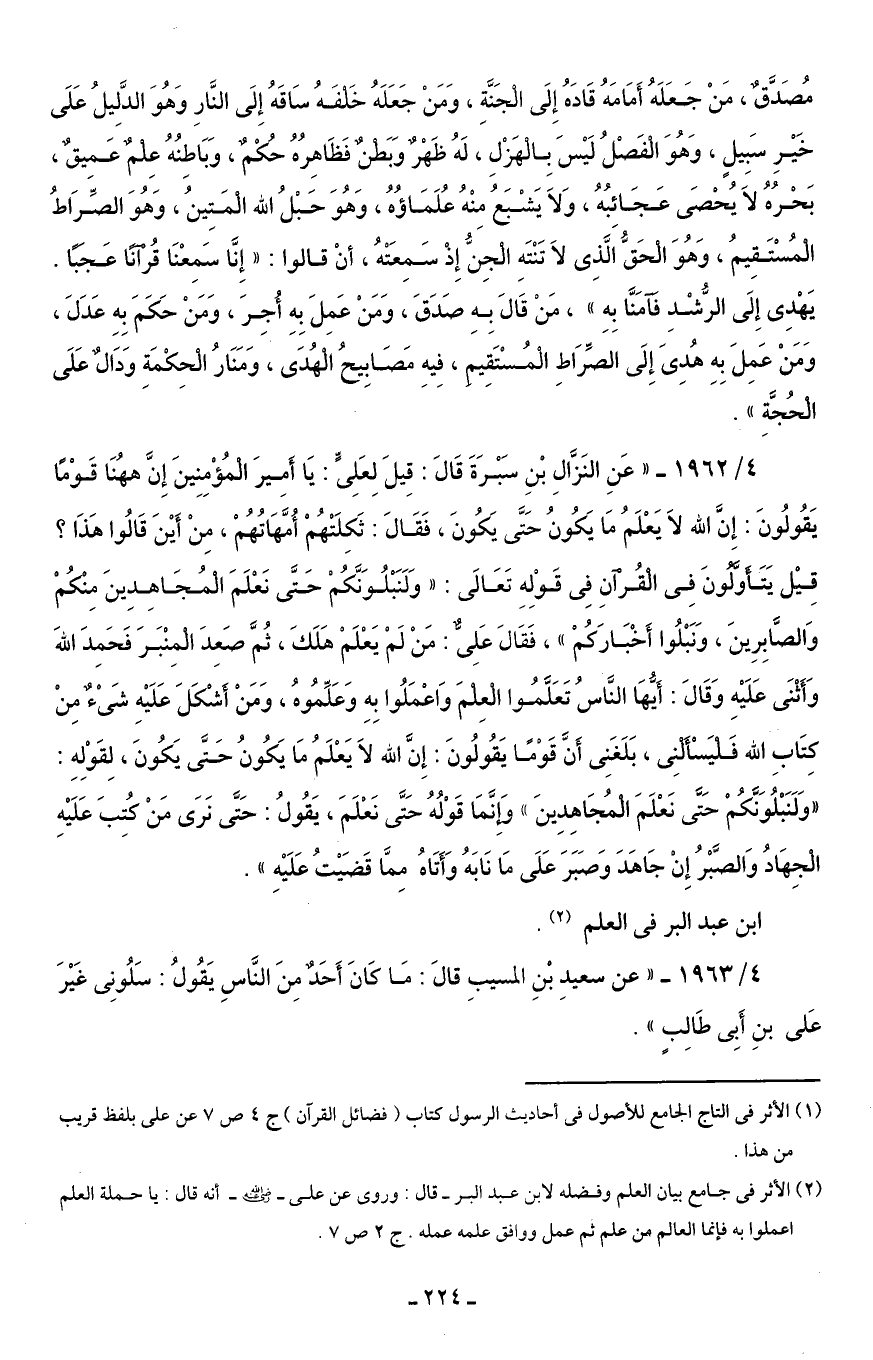 مُصَدَّقٌ ، مَنْ جَعَلَهُ أَمَامَهُ قَادَهُ إِلَى الْجَنَّةِ ، وَمَنْ جَعَلَهُ خَلْفَهُ سَاقَهُ إِلَى النَّارِ وَهُوَ الدَّلِيلُ عَلَى
خَيْرِ سَبِيلٍ ، وَهُوَ الْفَصْلُ لَيْسَ بِالْهَزْلِ ، لَهُ ظَهْرٌ وَبَطْنٌ فَظَاهِرُهُ حُكْمٌ ، وَبَاطِنُهُ عِلْمٌ عَمِيقٌ ،
بَحْرُهُ لاَ يُحْصَى عَجَائِبُهُ ، وَلاَ يَشْبَعُ مِنْهُ عُلَمَاؤُهُ ، وَهُوَ حَبْلُ الله الْمَتِينُ ، وَهُوَ الصِّرَاطُ
الْمُسْتَقِيمُ ، وَهُوَ الْحَقُّ الَّذِى لاَ تَنْتَهِ الْجِنُّ إِذْ سَمِعَتْهُ ، أَنْ قَالوا : « إِنَّا سَمِعْنَا قُرْآنًا عَجَبًا .
يَهْدِى إِلَى الرُّشْدِ فَآمَنَّا بِهِ » ، مَنْ قَالَ بِهِ صَدَقَ ، وَمَنْ عَمِلَ بِهِ أُجِرَ ، وَمَنْ حَكَمَ بِهِ عَدَلَ ،
وَمَنْ عَمِلَ بِهِ هُدِىَ إِلَى الصِّرَاطِ الْمُسْتَقِيمِ ، فِيهِ مَصَابِيحُ الْهُدَى ، وَمَنَارُ الْحِكْمَةِ وَدَالٌ عَلَى
الْحُجَّةِ » .
٤/ ١٩٦٢ ـ « عَنِ النَزَّالِ بْنِ سَبْرَةَ قَالَ : قِيلَ لِعَلِىٍّ : يَا أَمِيرَ الْمُؤْمِنِينَ إِنَّ هٰهُنَا قَوْمًا
يَقُولُونَ : إِنَّ الله لاَ يَعْلَمُ مَا يَكُونُ حَتَّى يَكُونَ ، فَقَالَ : ثَكِلَتْهُمْ أُمَّهَاتُهُمْ ، مِنْ أَيْنَ قَالُوا هَذَا ؟
قِيْل يَتَأَوَّلُونَ فِى الْقُرْآنِ فِى قَوْلِهِ تَعَالَى : « وَلَنَبْلُوَنَّكُمْ حَتَّى نَعْلَمَ الْمُجَاهِدِينَ مِنْكُمْ
وَالصَّابِرِينَ ، وَنَبْلُوا أَخْبَارَكُمْ » ، فَقَالَ عَلِىٌّ : مَنْ لَمْ يَعْلَمْ هَلَكَ ، ثُمَّ صَعِدَ الْمِنْبَرَ فَحَمِدَ اللهَ
وَأَثْنَى عَلَيْهِ وَقَالَ : أَيُّهَا النَّاسُ تَعَلَّمُوا الْعِلْمَ وَاعْمَلُوا بِهِ وَعَلِّمُوهُ ، وَمَنْ أَشْكَلَ عَلَيْهِ شَىْءٌ مِنْ
كِتَابِ الله فَلْيَسْأَلْنِى ، بَلَغَنِى أَنَّ قَوْمًا يَقُولُونَ : إِنَّ الله لاَ يَعْلَمُ مَا يَكُونُ حَتَّى يَكُونَ ، لِقَوْلِهِ :
«وَلَنَبْلُوَنَّكُمْ حَتَّى نَعْلَمَ الْمُجَاهِدِينَ » وَإِنَّمَا قَوْلُهُ حَتَّى نَعْلَمَ ، يَقُولُ : حَتَّى نَرَى مَنْ كُتِبَ عَلَيْهِ
الْجِهَادُ وَالصَّبْرُ إِنْ جَاهَدَ وَصَبَرَ عَلَى مَا نَابَهُ وَأَتَاهُ مِمَّا قَضَيْتُ عَلَيْهِ » .
ابن عبد البر فى العلم (٢) .
٤/ ١٩٦٣ ـ « عن سعيدِ بْنِ المسيبِ قالَ : مَا كَانَ أَحَدٌ مِنَ النَّاسِ يَقُولُ : سَلُونِى غَيْرَ
عَلَى بنِ أَبِى طَالِبٍ » .
(١) الأثر فى التاج الجامع للأصول فى أحاديث الرسول كتاب ( فضائل القرآن ) ج ٤ ص ٧ عن على بلفظ قريب
من هذا .
(٢) الأثر فى جامع بيان العلم وفضله لابن عبد البر ـ قال : وروى عن على ـ رضي الله عنه ـ أنه قال : يا حملة العلم
اعملوا به فإنما العالم من علم ثم عمل ووافق علمه عمله . ج ٢ ص ٧ .
ـ ٢٢٤ ـ